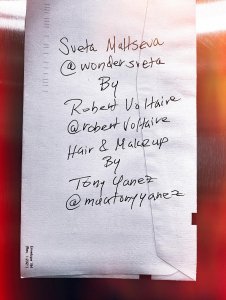 Sveta Maltseva
@wondersveta
By
Robert Voltaire
@robert Voltaire
Hair & Makeup
By
Tony Yanez
@muatonyyanez